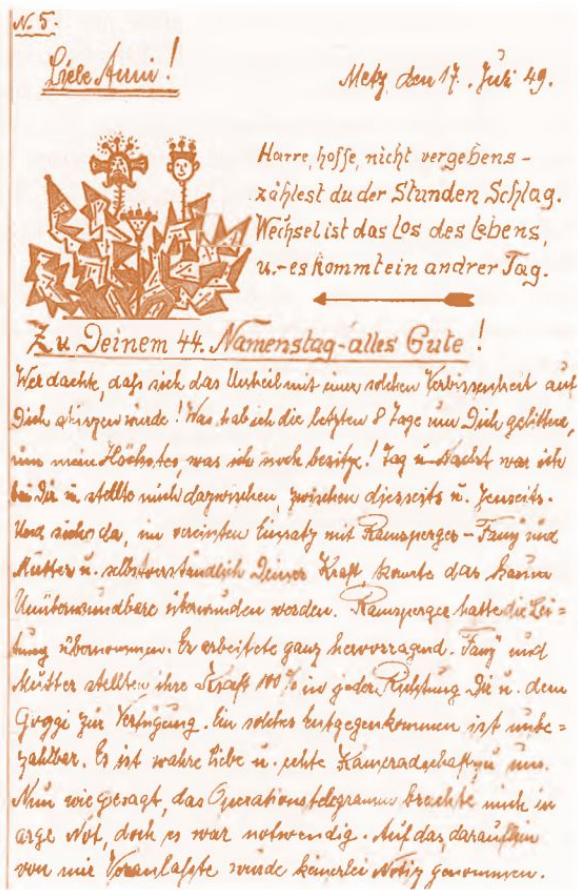 N. 5.
Liebe Anni!
Metz, den 17. Juli 49.
Harre, hoffe, nicht vergebens -
zählest du der Stunden Schlag.
Wechsel ist das Los des Lebens,
u. - es kommt ein andrer Tag.
Zu Deinem 44. Namenstag - alles Gute!
Wer dachte, daß sich das Unheil mit einer solchen Verbissenheit auf
Dich stürzen würde! Was hab ich die letzten 8 Tage um Dich gelitten,
um mein Höchstes, was ich noch besitze! Tag u. Nacht war ich
bei Dir u. stellte mich dazwischen, zwischen diesseits u. Jenseits.
Und siehe da, im vereinten Einsatz mit Ramsperger - Fanÿ und
Mutter u. selbstverständlich Deiner Kraft konnte das kaum
Unüberwindbare überwunden werden. Ramsperger hatte die Lei=
tung übernommen. Er arbeitete ganz hervorragend. Fanÿ und
Mutter stellten ihre Kraft 100% in jeder Richtung Dir u. dem
Goggi zur Verfügung. Ein solches Entgegenkommen ist unbe=
zahlbar. Es ist wahre Liebe u. echte Kameradschaft zu uns.
Nun wie gesagt, das Operationstelegramm brachte mich in
arge Not, doch es war notwendig. Auf das daraufhin
von mir Veranlaßte wurde keinerlei Notiz genommen.